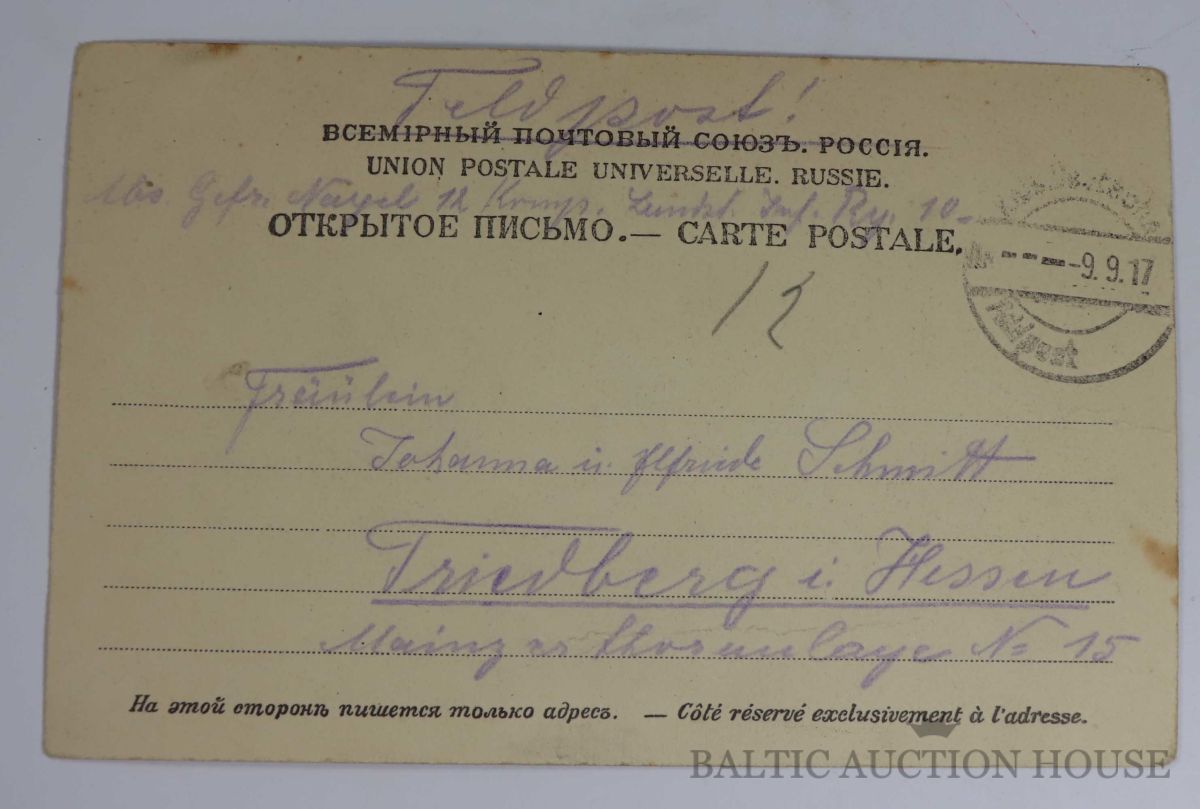 Feldpost!
ВСЕМІРНЫЙ ПОЧТОВЫЙ СОЮЗЪ. РОССІЯ.
UNION POSTALE UNIVERSELLE. RUSSIE.
Abs Gefr. Nagel 12 Komp. Landst. Inf. Rg. 10
ОТКРЫТОЕ ПИСЬМО.— CARTE POSTALE.
-9.9.17
12
Fräulein
Johanna u. Elfriede Schmitt
Friedberg i. Hessen
Mainzer thoranlage No 15
На этой сторонѣ пишется только адресъ. — Côté réservé exclusivement à l'adresse.
BALTIC AUCTION HOUSE